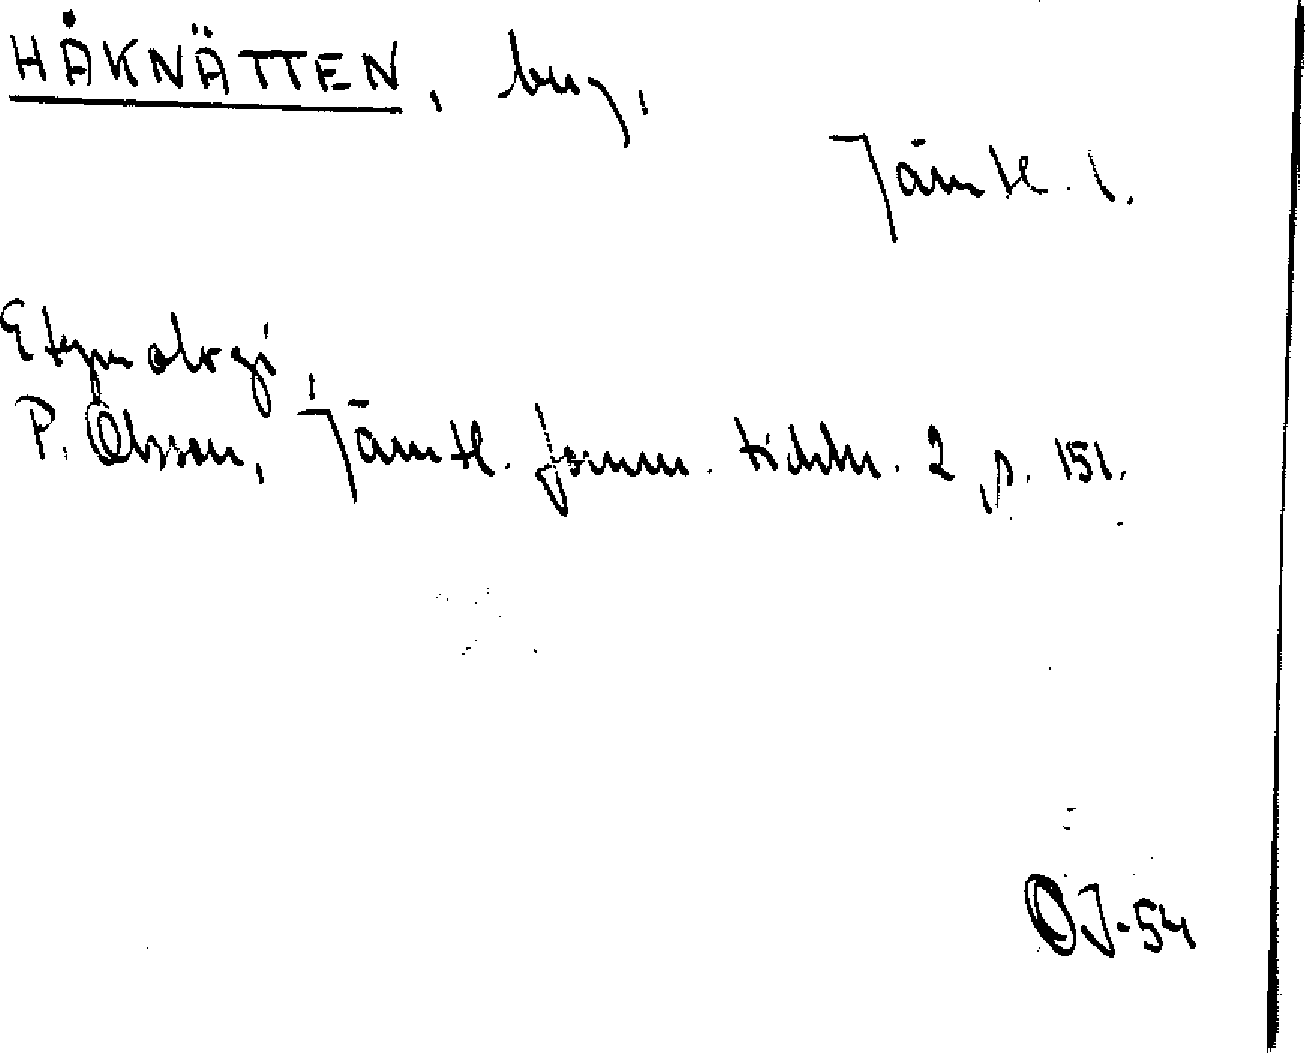 HÅKNÄTTEN, berg,
Jämtl. l.
Etymologi
P. Olsson, Jämtl. fornm. tidskr. 2, p. 151.
OJ-54